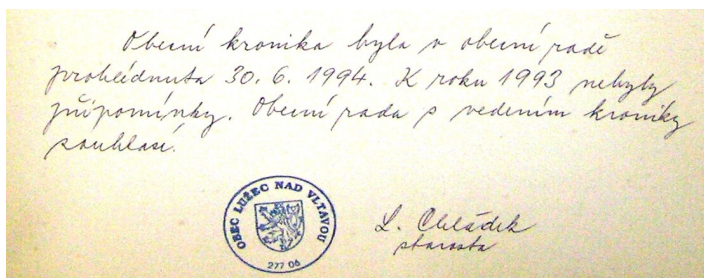 Obecní kronika byla v obecní radě
prohlédnuta 30. 6. 1994. K roku 1993 nebyly
připomínky. Obecní rada s vedením kroniky
souhlasí.
OBEC LUŽEC NAD VLTAVOU
277 06
L. Chládek
starosta